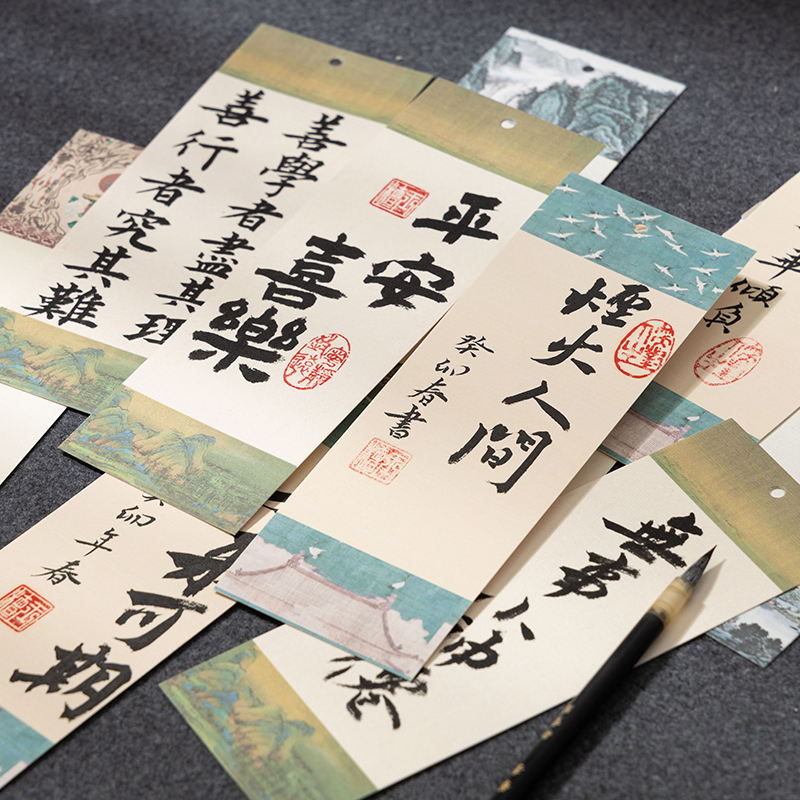 善學者盡其理
善行者究其難
平安
喜樂
煙火人間
癸卯春書
華
傾負
無事小神僊
可期
卯年春